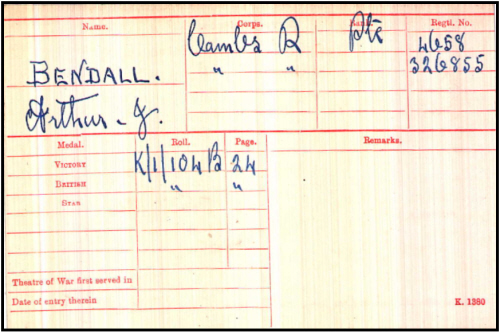 Name. Corps. Rank. Regtl. No.
Cambs R Pte 4658
BENDALL. " " 326855
Arthur. J.
Medal. Roll. Page. Remarks.
VICTORY K/1/104 B 24
BRITISH " "
STAR
Theatre of War first served in
Date of entry therein K. 1380